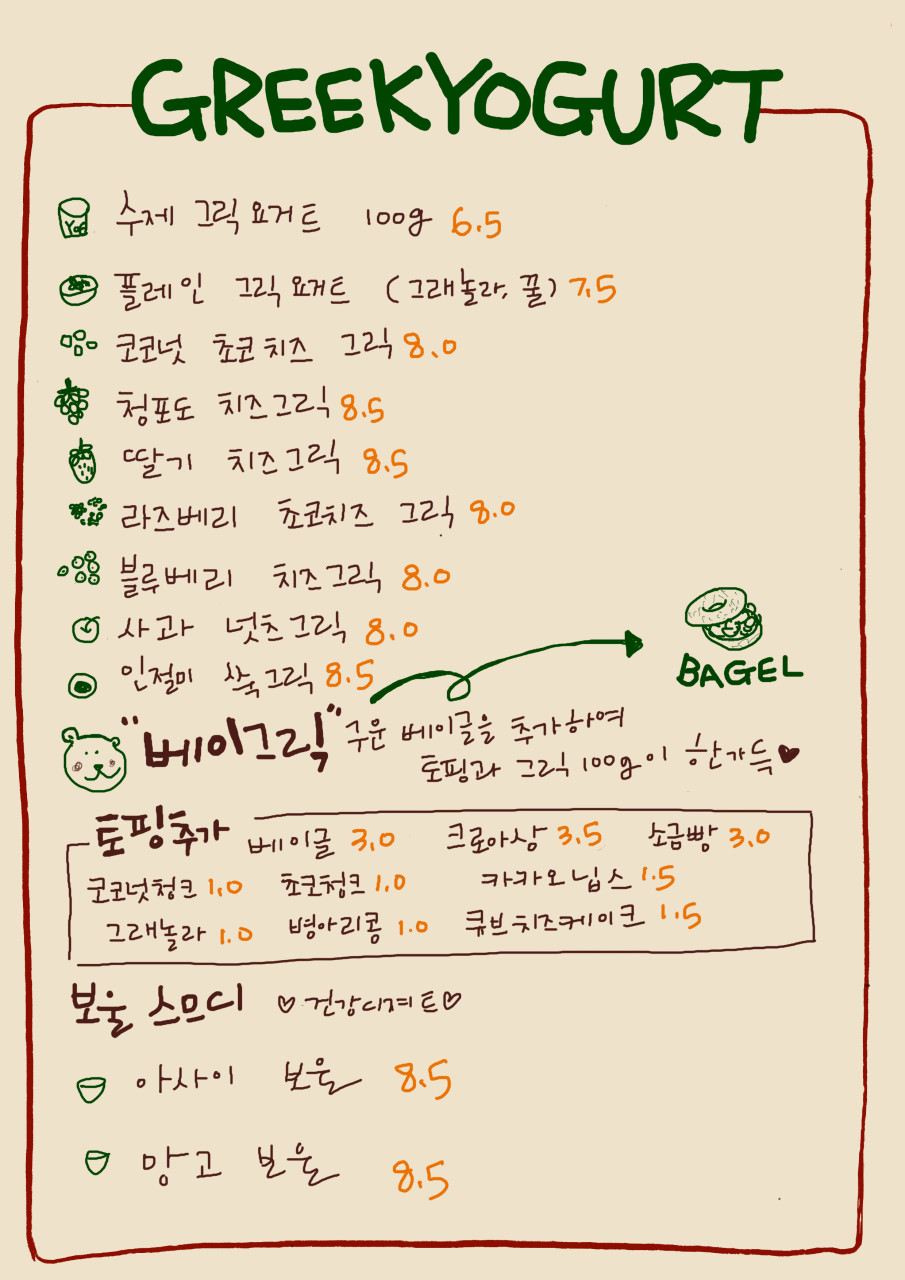 GREEKYOGURT
Yog
수제 그릭요거트 100g 6.5
플레인 그릭요거트 (그래놀라, 꿀) 7.5
코코넛 초코치즈 그릭 8.0
청포도 치즈그릭 8.5
딸기 치즈그릭 8.5
라즈베리 초코치즈 그릭 8.0
블루베리 치즈그릭 8.0
사과 넛츠그릭 8.0
인절미 쑥그릭 8.5
BAGEL
"베이그릭" 구운 베이글을 추가하여
토핑과 그릭 100g이 한가득♥
토핑추가
베이글 3.0 크로아상 3.5 소금빵 3.0
코코넛청크 1.0 초코청크 1.0 카카오닙스 1.5
그래놀라 1.0 병아리콩 1.0 큐브치즈케이크 1.5
보울 스므디 ♡건강디져트♡
아사이 보울 8.5
망고 보울 8.5